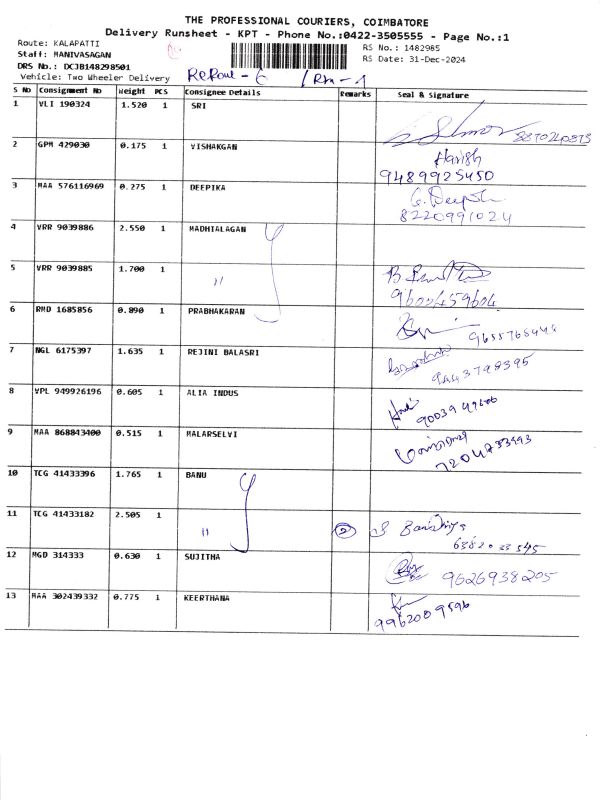 THE PROFESSIONAL COURIERS, COIMBATORE
Delivery Runsheet - KPT - Phone No.:0422-3505555 - Page No.:1
Route: KALAPATTI
Staff: MANIVASAGAN
DRS No.: DCJB148298501
Vehicle: Two Wheeler Delivery
RS No.: 1482985
RS Date: 31-Dec-2024
S No Consignment No Weight PCS Consignee Details Remarks Seal & Signature
1 VLI 190324 1.520 1 SRI
2 GPM 429030 0.175 1 VISHAKGAN Harish
9489925450
3 MAA 576116969 0.275 1 DEEPIKA G. Deepika
8220991024
4 VRR 9039886 2.550 1 MADHIALAGAN
5 VRR 9039885 1.700 1 "
9600459604
6 RMD 1685856 0.890 1 PRABHAKARAN
7 NGL 6175397 1.635 1 REJINI BALASRI
9443798395
8 VPL 949926196 0.605 1 ALIA INDUS
9 MAA 868843400 0.515 1 MALARSELVI
10 TCG 41433396 1.765 1 BANU
11 TCG 41433182 2.505 1 " 2
12 MGD 314333 0.630 1 SUJITHA 9626938205
13 MAA 302439332 0.775 1 KEERTHANA
9962009596